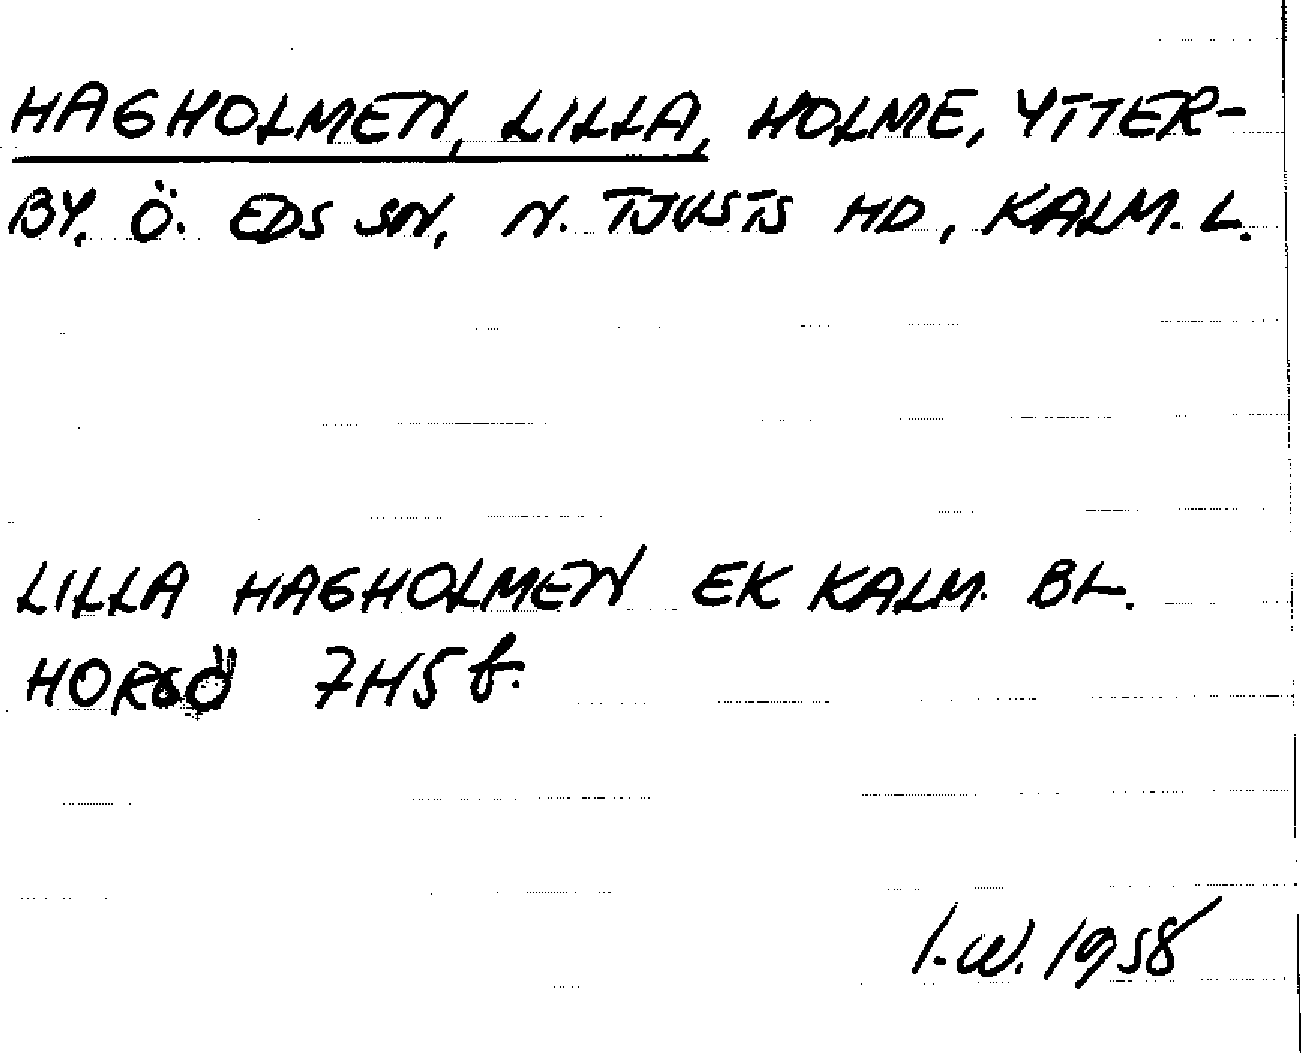 HAGHOLMEN, LILLA, HOLME, YTTER-
BY, Ö. EDS SN, N. TJUSTS HD, KALM. L.
LILLA HAGHOLMEN EK KALM. BL.
HORSÖ 7H5f.
I.W. 1958